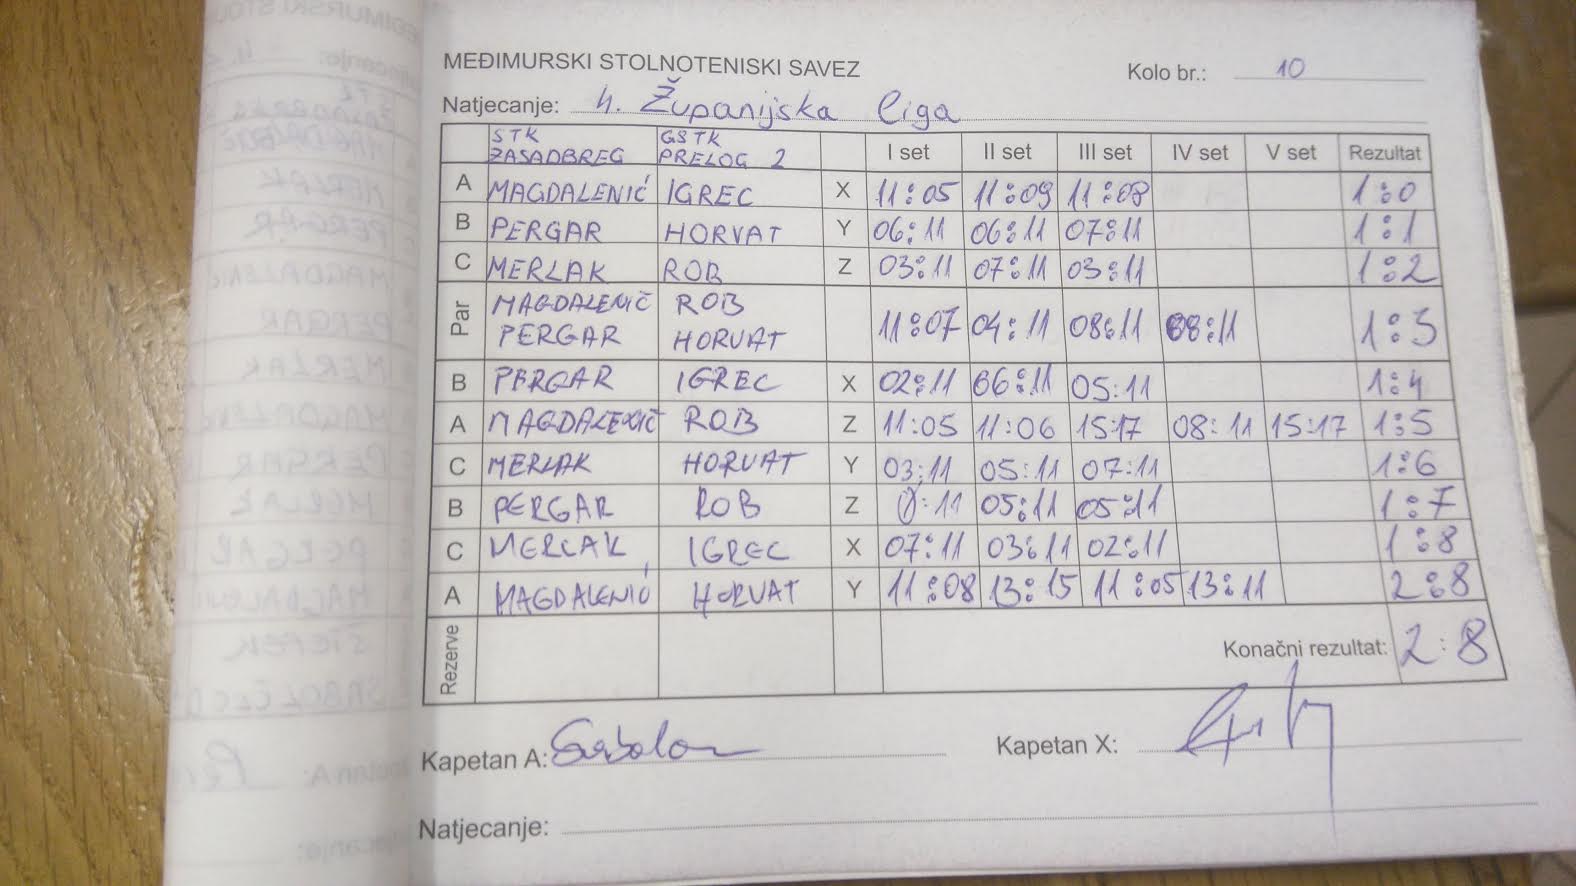 MEĐIMURSKI STOLNOTENISKI SAVEZ
Kolo br.: 10
Natjecanje: 4. Županijska liga
STK ZASADBREG GSTK PRELOG 2 I set II set III set IV set V set Rezultat
A MAGDALENIĆ IGREC X 11:05 11:09 11:08 1:0
B PERGAR HORVAT Y 06:11 06:11 07:11 1:1
C MERLAK ROB Z 03:11 07:11 03:11 1:2
Par MAGDALENIĆ PERGAR ROB HORVAT 11:07 04:11 08:11 08:11 1:3
B PERGAR IGREC X 02:11 06:11 05:11 1:4
A MAGDALENIĆ ROB Z 11:05 11:06 15:17 08:11 15:17 1:5
C MERLAK HORVAT Y 03:11 05:11 07:11 1:6
B PERGAR ROB Z 0:11 05:11 05:11 1:7
C MERLAK IGREC X 07:11 03:11 02:11 1:8
A MAGDALENIĆ HORVAT Y 11:08 13:15 11:05 13:11 2:8
Rezerve Konačni rezultat: 2:8
Kapetan A: Kapetan X:
Natjecanje: